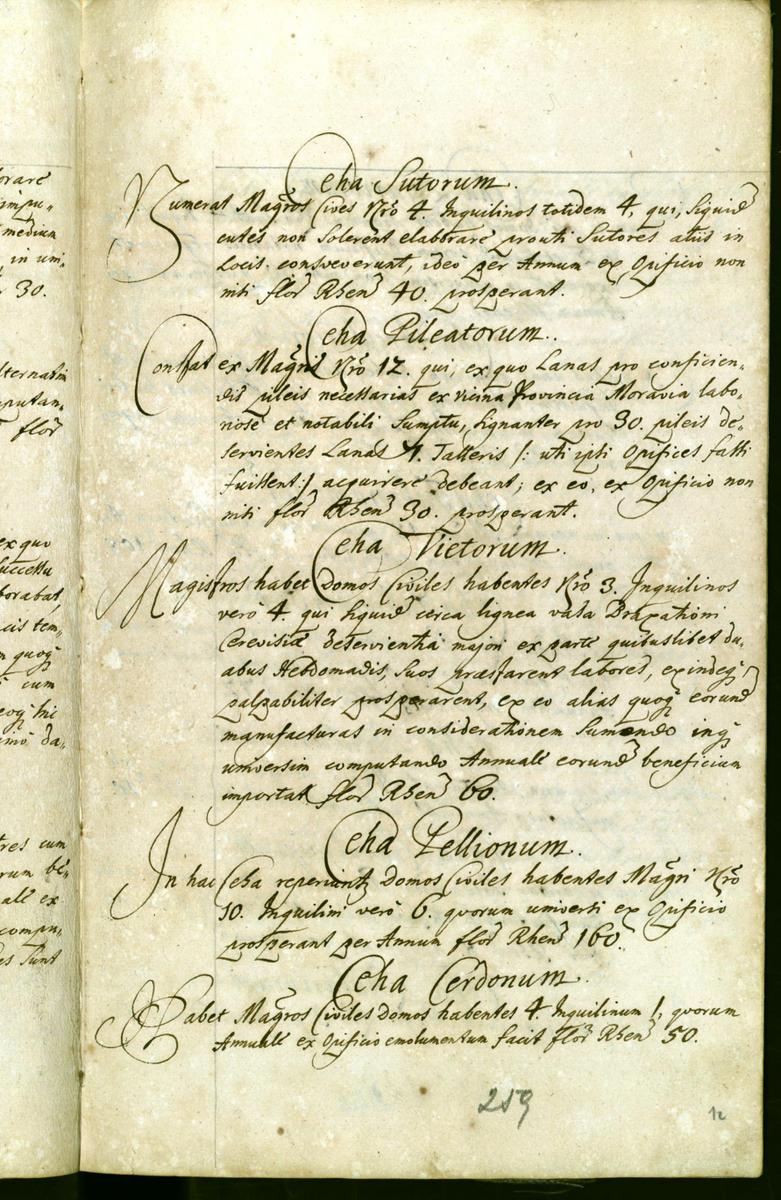 orare
impu„
medium
in uni„
30.
lternatim
mputan„
flor
ex quo
successu
borabat,
cis tem„
quoq
cum
imò da„
tres cum
rum be„
ale ex
compu„
es sunt
Ceha Sutorum.
Numerat Magros Cives Nro 4. Inquilinos totidem 4, qui, siquid
cutes non solerent elaborare prouti Sutores aliis in
Locis consveverunt, ideò per Annum ex Opificio non
nisi flor Rhen 40. prosperant.
Ceha Pileatorum.
Constat ex Magris Nro 12. qui, ex quo Lanas pro conficien„
dis pileis necessarias ex vicina Provincia Moravia labo„
riose et notabili Sumptu, signanter pro 30. pileis de„
servientes Lanas 4. Talleris /: uti ipsi Opifices fassi
fuissent :/ acquirere debeant; ex eo, ex Opificio non
nisi flor Rhen 30. prosperant.
Ceha Vietorum.
Magistros habet Domos Civiles habentes Nro 3. Inquilinos
verò 4. qui siquid circa lignea vasa Braxationi
Cerevisiæ deservientia majori ex parte quibuslibet du„
abus Hebdomadis, suos præstarent labores, ex indeq,
palpabiliter prosperarent, ex eo alias quoq eorund
manufacturas in considerationem Sumendo inq
universim computando Annuale eorund beneficium
importat flor Rhen 60.
Ceha Pellionum.
In hac Ceha reperiuntr Domos Civiles habentes Magri Nro
10. Inquilini verò 6. quorum universi ex Opificio
prosperant per Annum flor Rhen 160.
Ceha Cerdonum.
Habet Magros Civiles Domos habentes 4. Inquilinum 1, quorum
Annuale ex Opificio emolumentum facit flor Rhen 50.
259
12